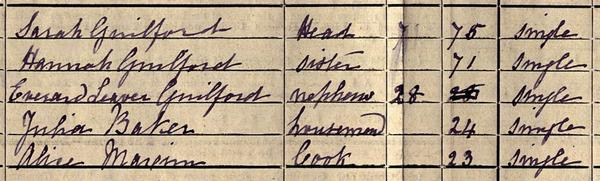 Sarah Guilford Head 7 75 Single
Hannah Guilford sister 71 Single
Everard Leaver Guilford nephew 28 28 Single
Julia Baker housemaid 24 Single
Alice Cook 23 Single